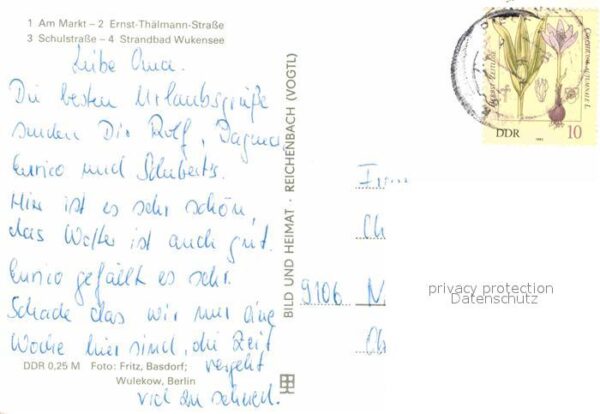 1 Am Markt – 2 Ernst-Thälmann-Straße
3 Schulstraße – 4 Strandbad Wukensee
Liebe Oma.
Die besten Urlaubsgrüße
senden Dir Rolf, Dagmar
Enrico und Schuberts.
Hier ist es sehr schön,
das Wetter ist auch gut.
Enrico gefällt es sehr.
Schade das wir nur eine
Woche hier sind, die Zeit
vergeht
viel zu schnell.
DDR 0,25 M Foto: Fritz, Basdorf;
Wulekow, Berlin
BILD UND HEIMAT · REICHENBACH (VOGTL)
Colchicum autumnale L.
DDR
1982
10
9106 N
Ch
privacy protection
Datenschutz